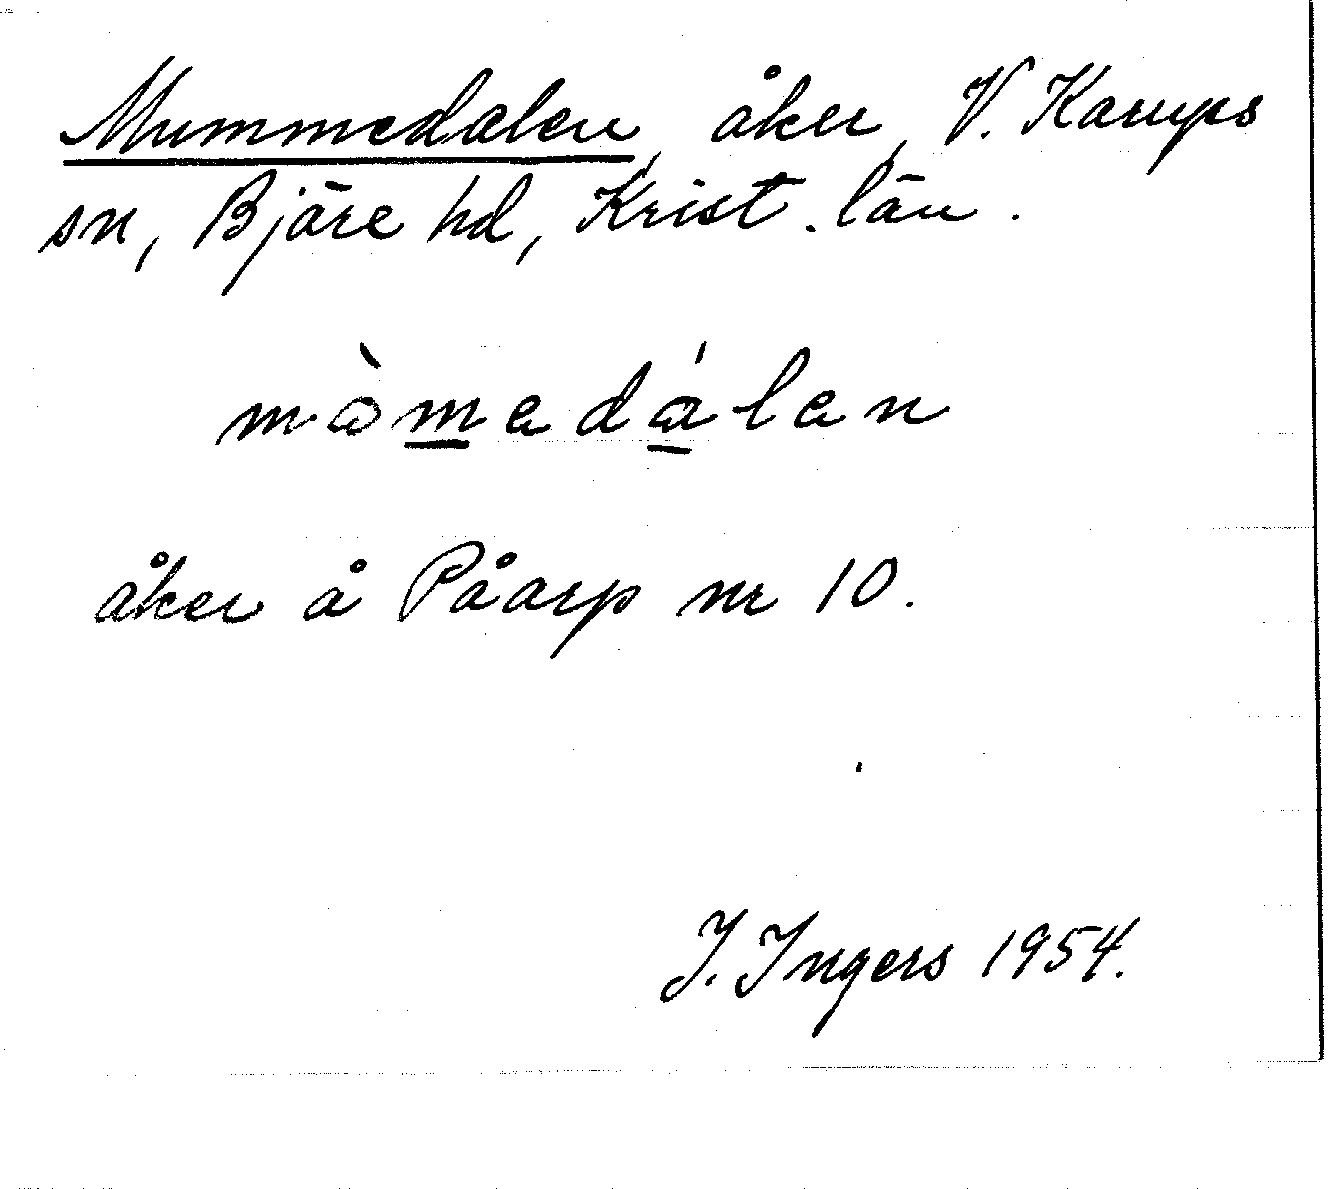 Mummedalen, åker, V. Karups
sn, Bjäre hd, Krist. län.
mòmadálan
åker å Påarp nr 10.
J. Ingers 1954.